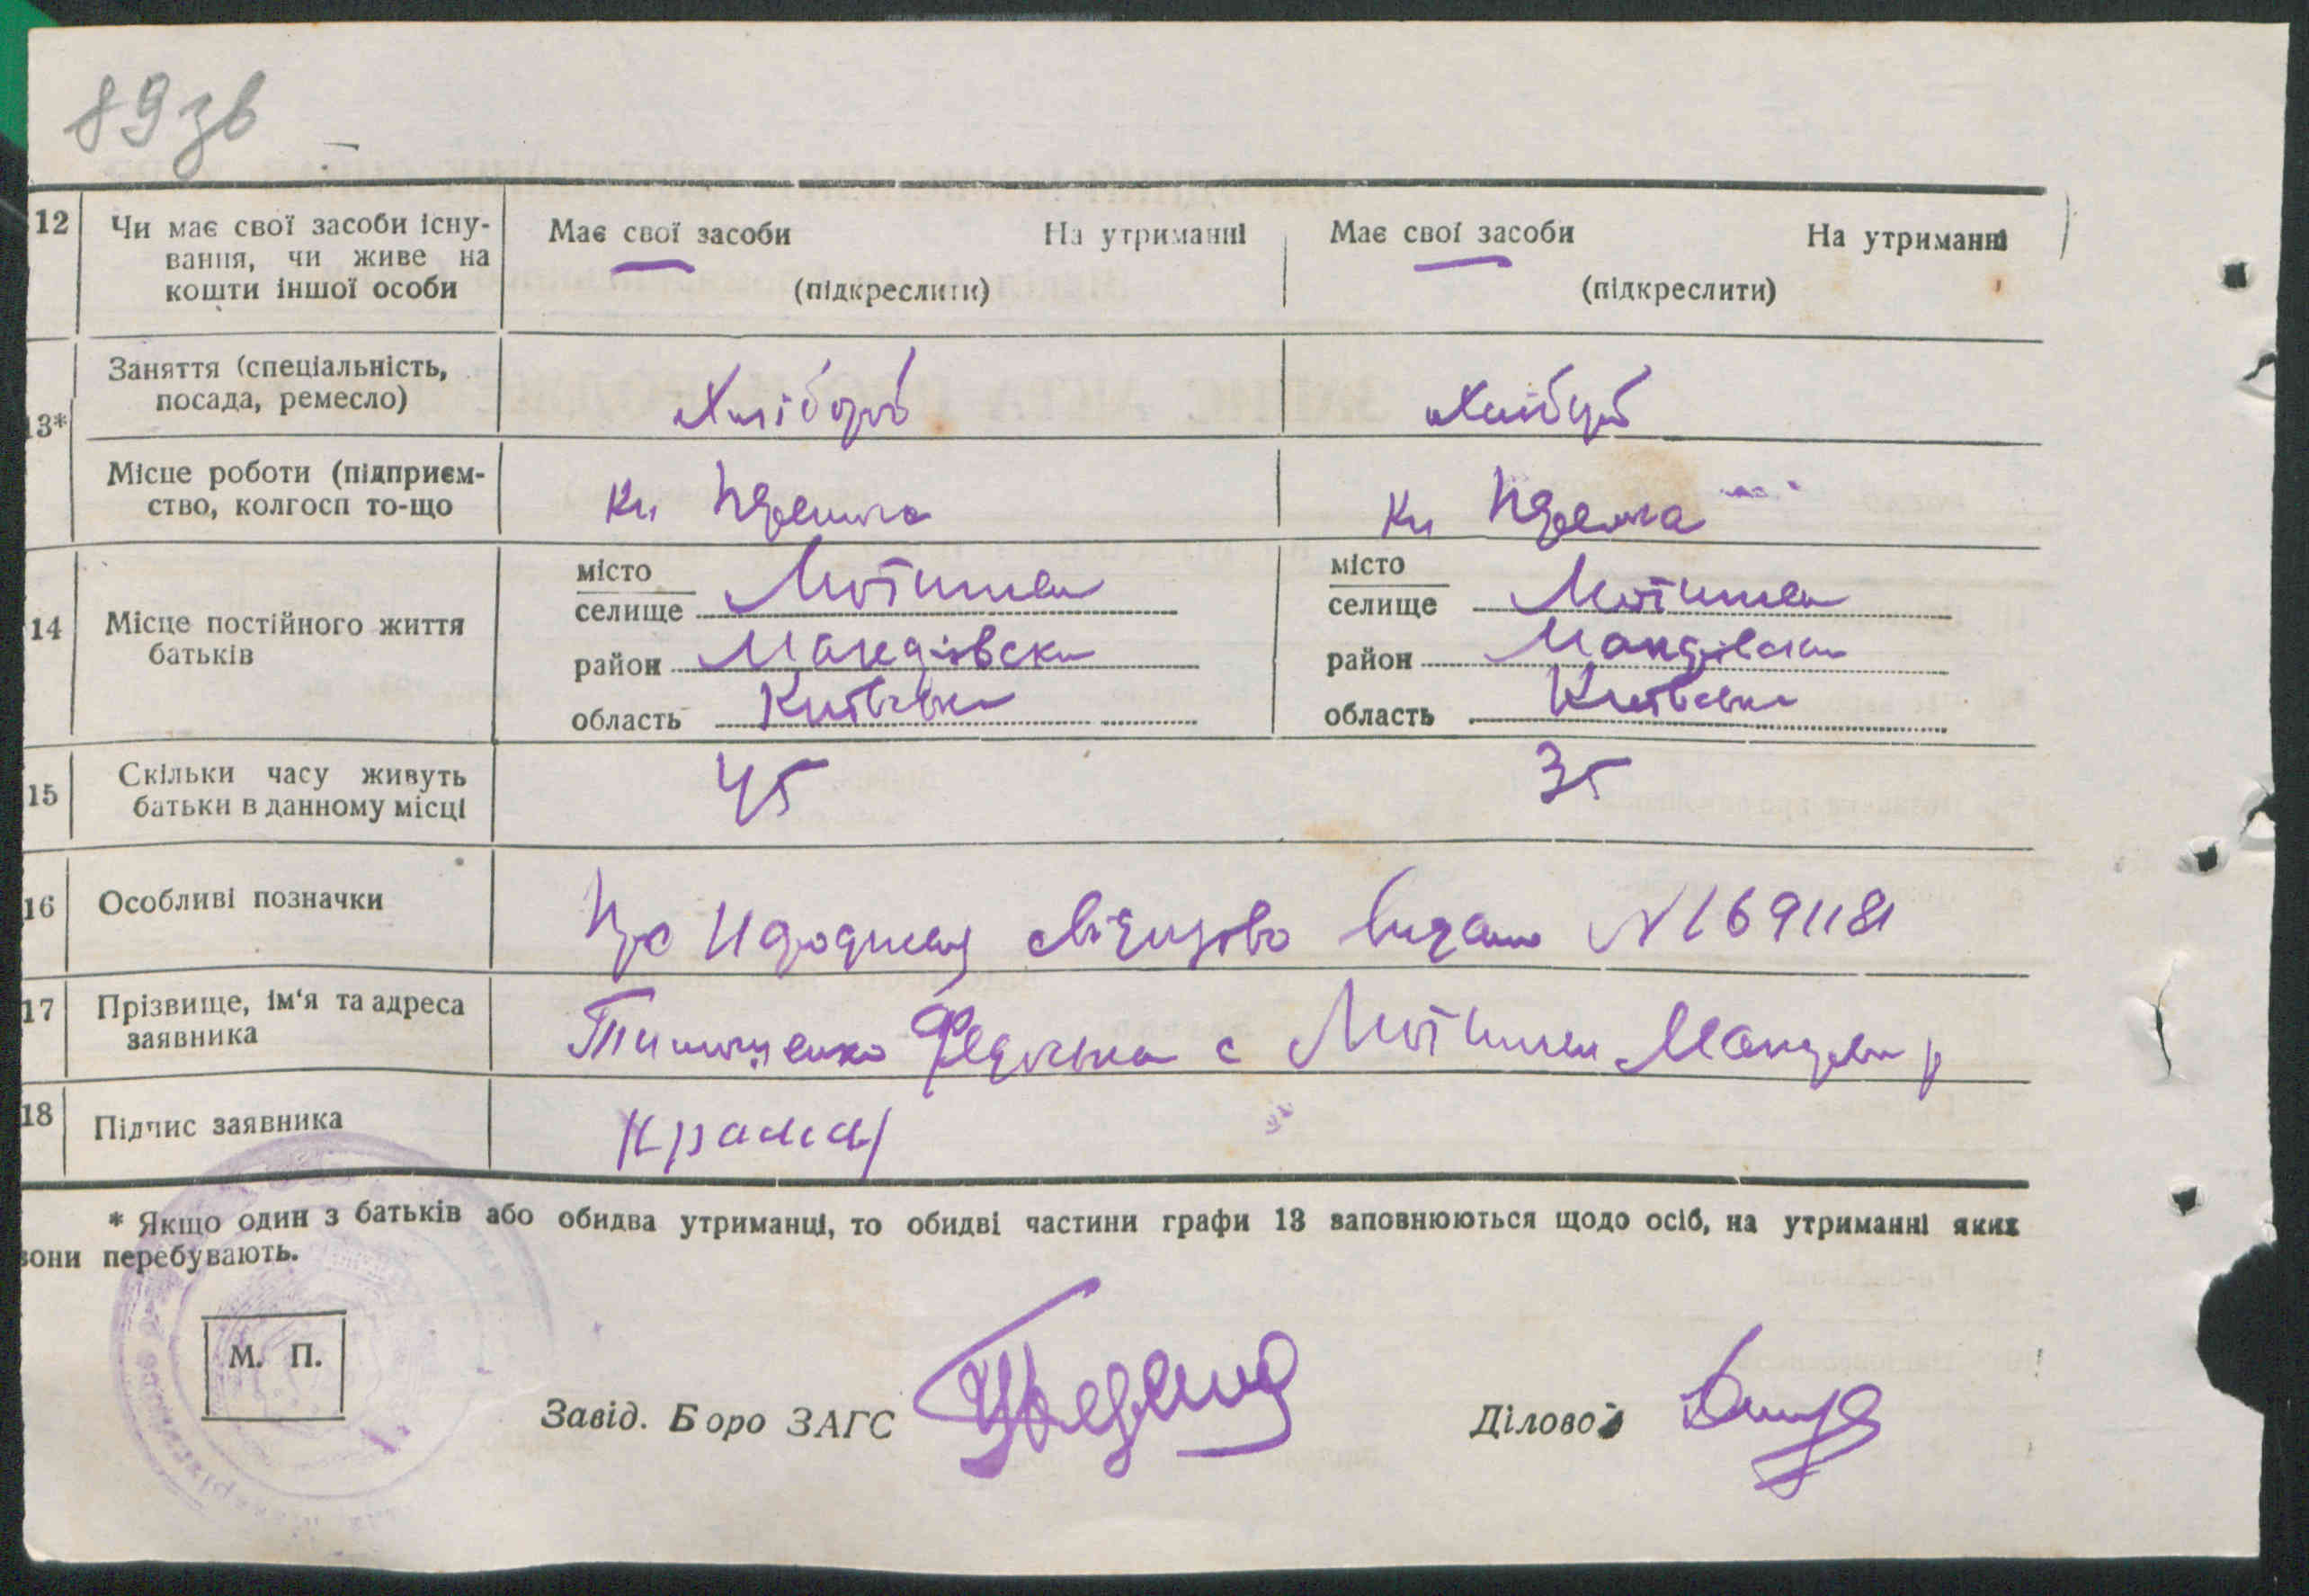 89 зв
12 Чи має свої засоби існу- Має свої засоби На утриманні Має свої засоби На утриманні
вання, чи живе на
кошти іншої особи (підкреслити) (підкреслити)
Заняття (спеціальність,
посада, ремесло) Хлібороб Хлібороб
13*
Місце роботи (підприєм-
ство, колгосп то-що
місто місто
селище Мотижин селище Мотижин
14 Місце постійного життя
батьків
район Макарівськ район Макарівськ
область Київська область Київська
15 Скільки часу живуть 45 35
батьки в данному місці
16 Особливі позначки Про народжен свідоцтво видано № 169118
17 Прізвище, ім'я та адреса
заявника Тимошенко с Мотижин Макарів р
18 Підпис заявника
* Якщо один з батьків або обидва утриманці, то обидві частини графи 13 заповнюються щодо осіб, на утриманні яких
вони перебувають.
М. П.
Завід. Боро ЗАГС Ділово